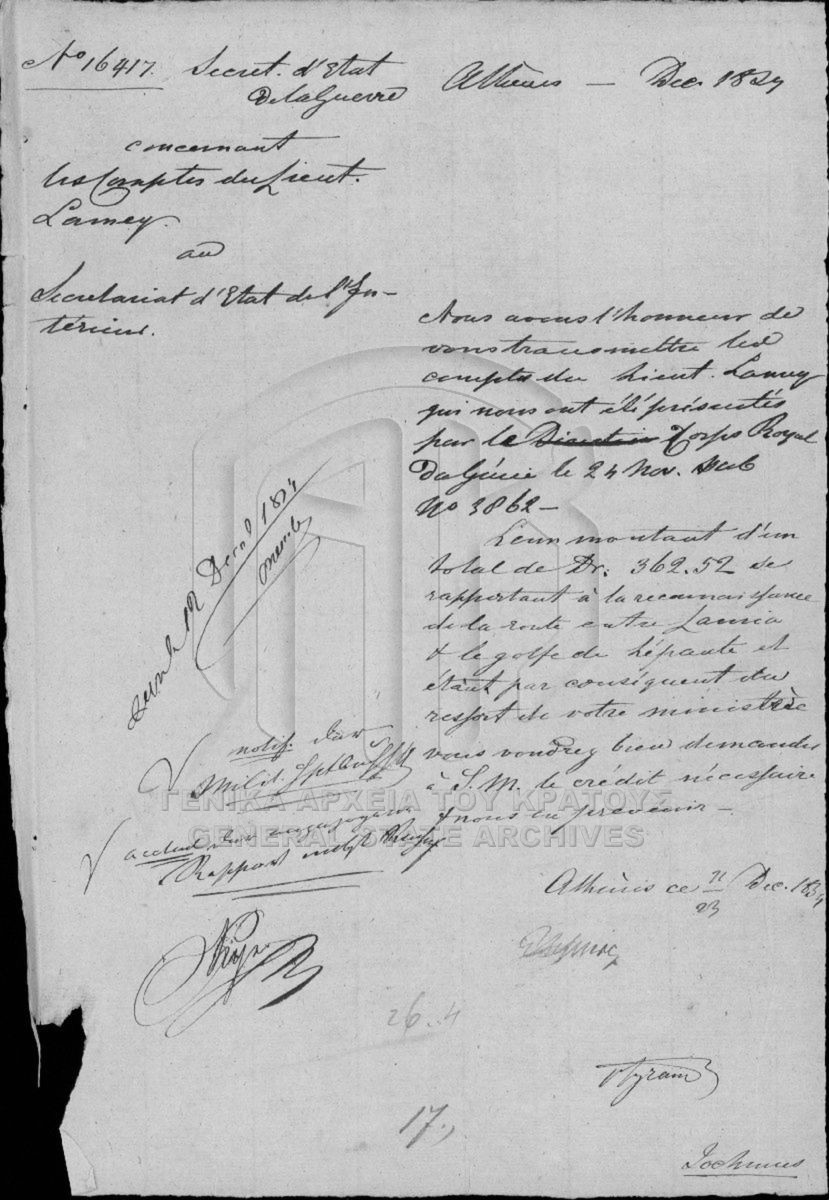 No 16417. Secret. d'Etat
de la Guerre
Athènes — Dec. 1834
concernant
les Comptes du Lieut.
Lamey.
au
Secretariat d'Etat de l'In-
térieur.
Nous avons l'honneur de
vous transmettre les
comptes du Lieut. Lamey
qui nous ont été présentés
par le Direction Corps Royal
du Génie le 24 Nov. sub
No 3862 —
Leur montant d'un
total de Dr. 362.52 se
rapportant à la reconnaissance
de la route entre Lamia
& le golfe de Lépante et
étant par conséquent du
ressort de votre ministère
vous voudrez bien demander
à S. M. le crédit nécessaire
& nous en prévenir —
Athènes ce 11/23 Dec. 1834
12 1834
notif.
Milit.
Rapport
26.4
17.
Jochmus
ΓΕΝΙΚΑ ΑΡΧΕΙΑ ΤΟΥ ΚΡΑΤΟΥΣ
GENERAL STATE ARCHIVES